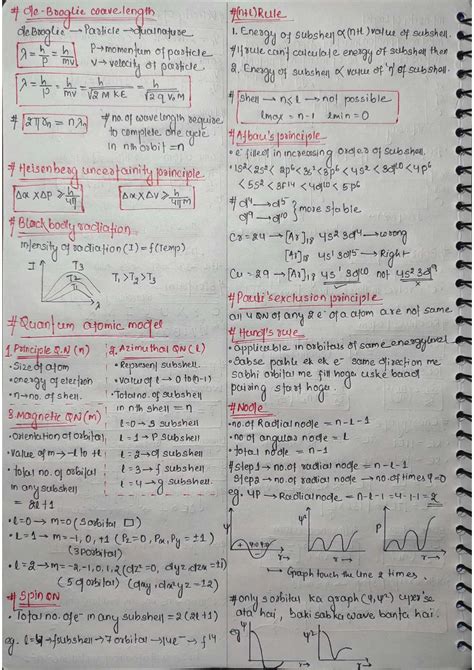 # de-Broglie wavelength
de Broglie → Particle → dual nature
λ = h/p = h/mv
P → momentum of particle
v → velocity of particle
λ = h/p = h/mv = h/√2 m KE = h/√2 q V₀ M
# 2πrn = nλn
# no. of wave length require
to complete one cycle
in nth orbit = n
# Heisenberg uncertainity principle
Δx × Δp ≥ h/4π
Δx × Δv ≥ h/4πm
# Black body radiation
intensity of radiation (I) = f(Temp)
I
T3
T2
T1
λ
T1 > T2 > T3
# Quantum atomic model
1. Principle Q.N (n)
• Size of atom
• energy of electron
• n → no. of shell
2. Azimuthal QN (l)
• Represent subshell
• Value of l → 0 to (n-1)
• Total no. of subshell
in nth shell = n
l = 0 → S subshell
l = 1 → P subshell
l = 2 → d subshell
l = 3 → f subshell
l = 4 → g subshell
3. Magnetic QN (m)
• Orientation of orbital
• Value of m → -l to +l
• total no. of orbital
in any subshell
= 2l+1
• l = 0 → m = 0 (S orbital □)
• l = 1 → m = -1, 0, +1 (Pz = 0, Px, Py = ±1)
(3 p orbital)
• l = 2 → m = -2, -1, 0, 1, 2 (dz² = 0, dyz, dzx = ±1)
(5 d orbital) (dxy, dx²y² = ±2)
# Spin QN
• Total no. of e⁻ in any subshell = 2(2l+1)
→ f subshell → 7 orbital → 14e⁻ → f¹⁴
# (n+l) Rule
1. Energy of subshell ∝ (n+l) value of subshell.
rule can't calculate energy of subshell then
2. Energy of subshell ∝ value of 'n' of subshell.
# Shell → n ≤ l → not possible
lmax = n-1 lmin = 0
# Afbau's principle
• e⁻ filled in increasing order of subshell.
# d⁴ → d⁵
d⁹ → d¹⁰ } more stable
Cr = 24 → [Ar]18 4s² 3d⁴ → wrong
[Ar]18 4s¹ 3d⁵ → Right
Cu = 29 → [Ar]18 4s¹ 3d¹⁰ not 4s² 3d⁹
# Pauli's exclusion principle
all 4 QN of any 2 e⁻ of a atom are not same
# Hund's rule
• applicable in orbitals of same energy level
• Sabse pahle ek ek e⁻ same direction me
sabhi orbital me fill hoga uske baad
pairing start hoga.
# Node
• no. of Radial node = n-l-1
• no. of angular node = l
• total node = n-1
# Step1 → no. of radial node = n-l-1
Step2 → no. of radial node → no. of times Ψ=0
eg. 4P → Radial node = n-l-1 = 4-1-1 = 2
Ψ
r→
Ψ²
r→
P
r→
→ Graph touch the line 2 times.
# only s orbital ka graph (Ψ, Ψ²) uper se
ata hai, baki sabka wave banta hai.
eg Ψ
Ψ²